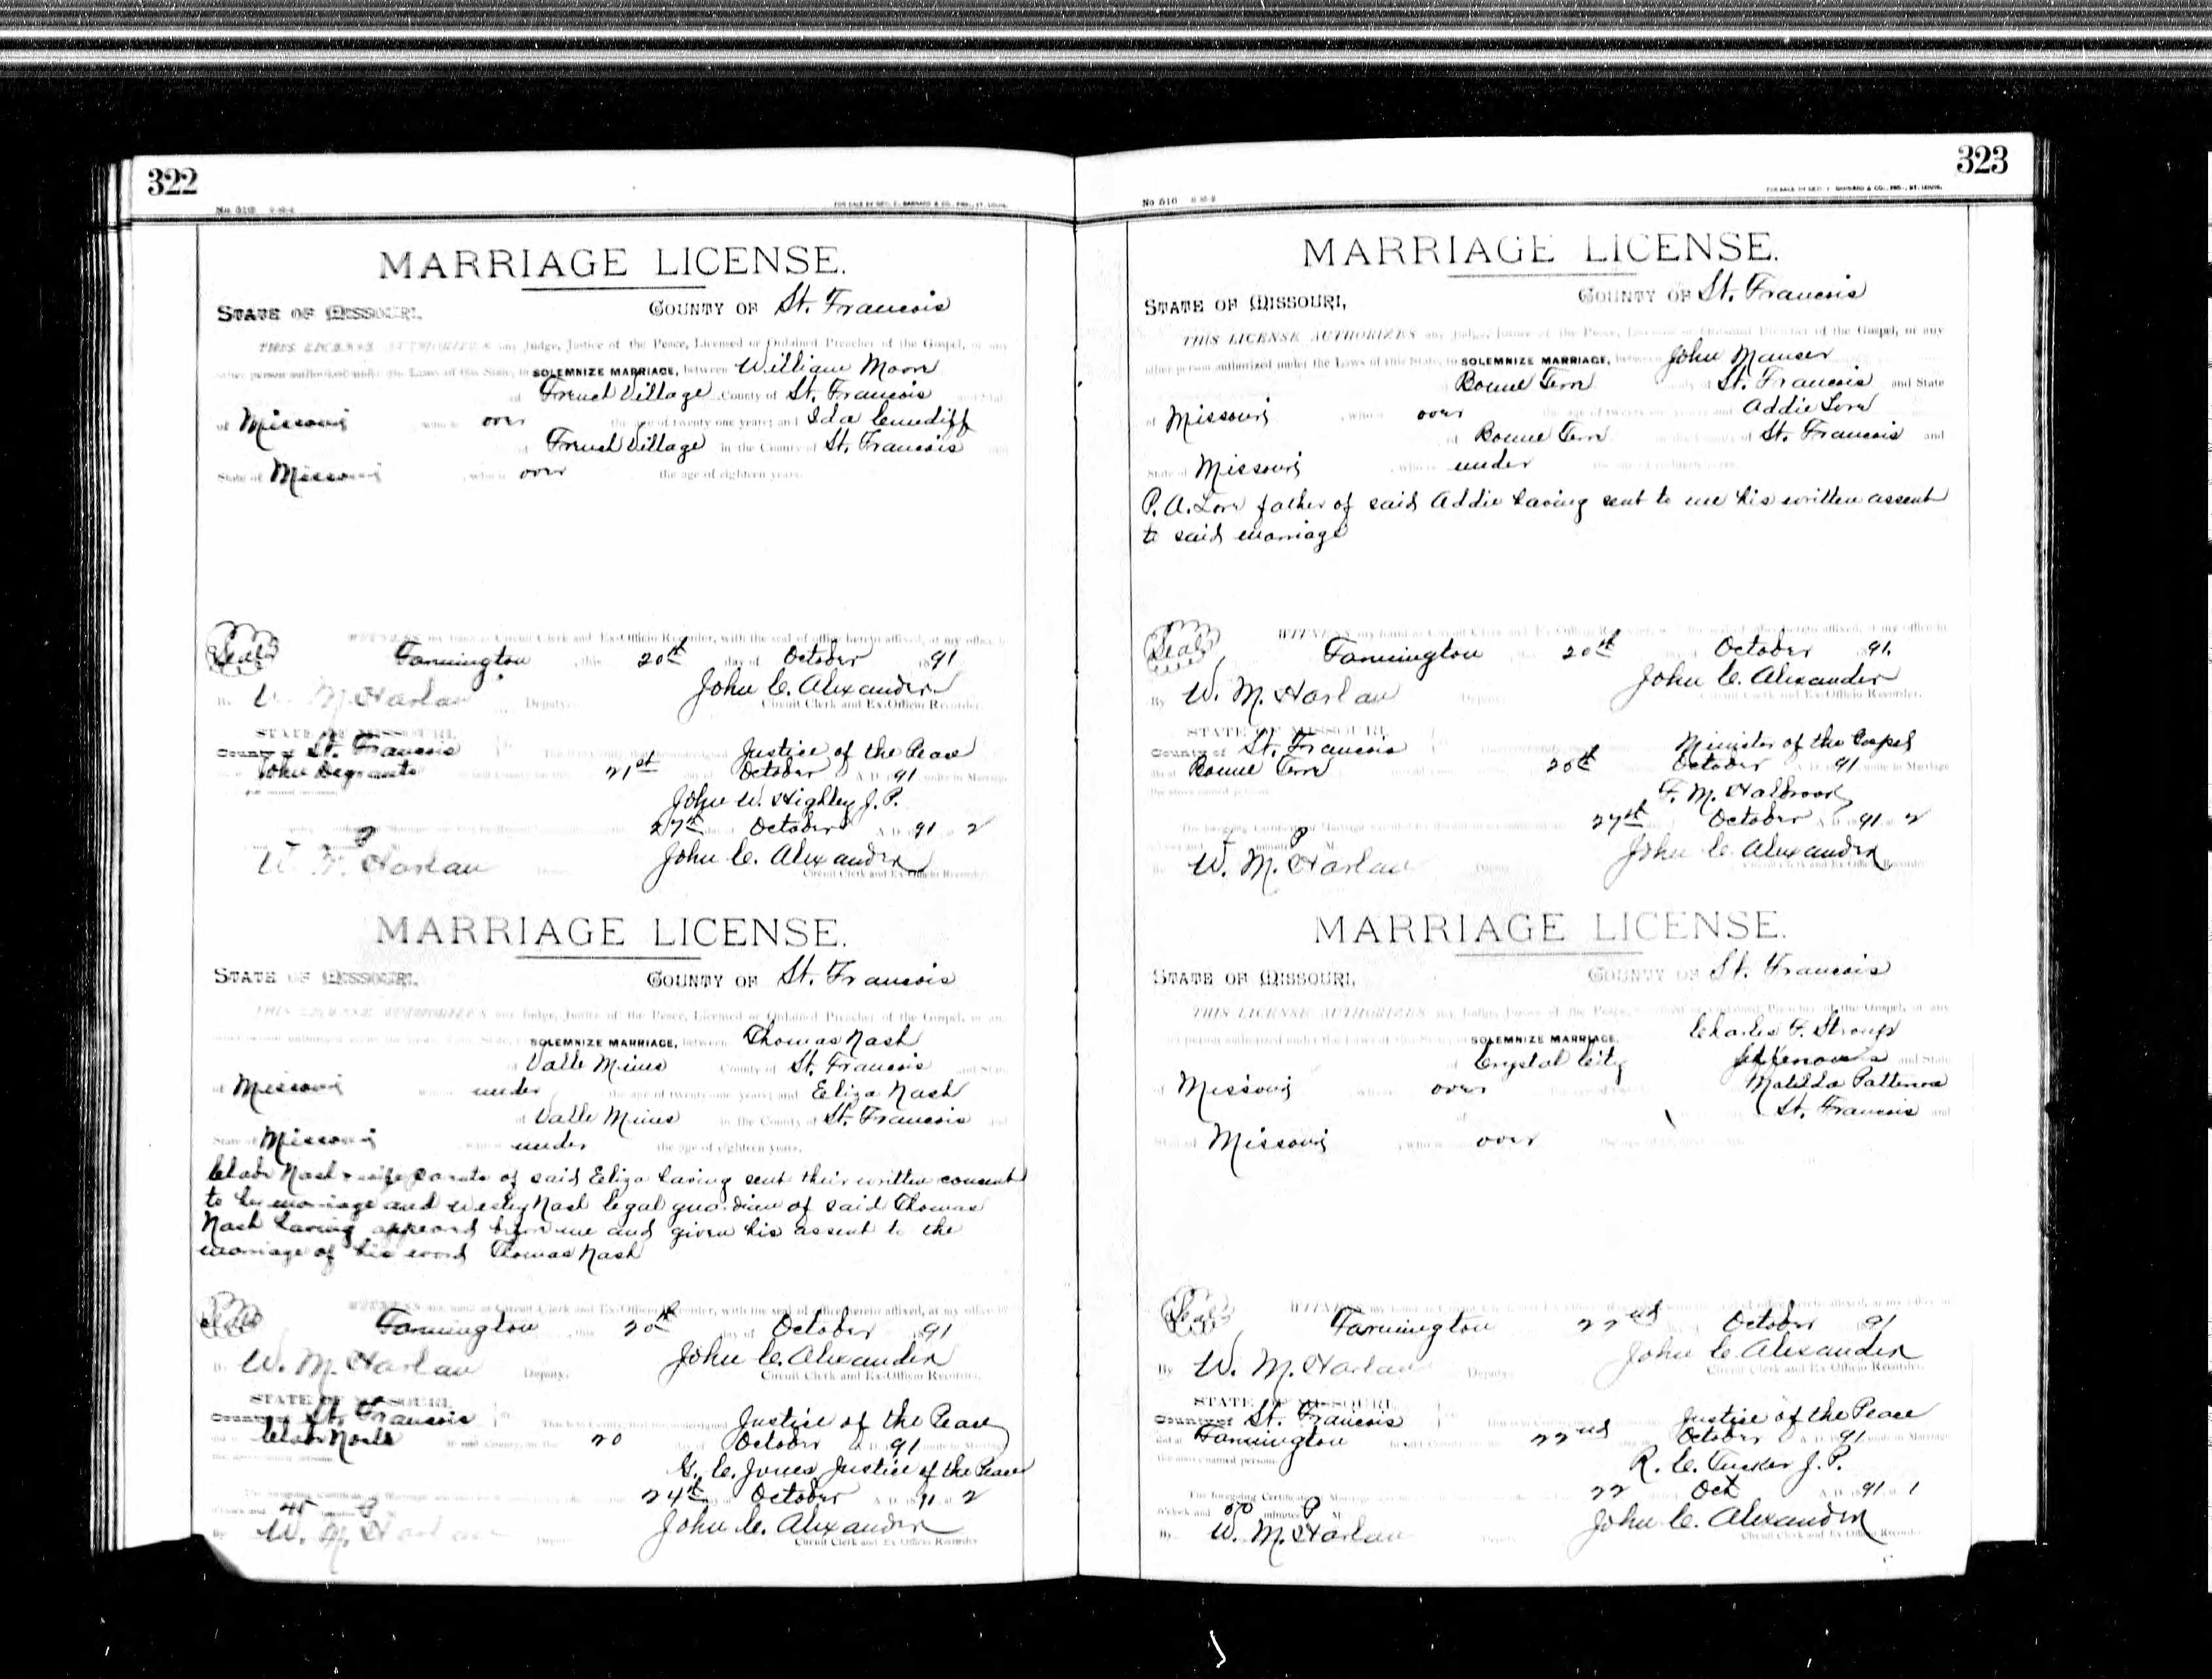 322
No 516
FOR SALE BY GEO. D. BARNARD & CO., PRS., ST. LOUIS.
MARRIAGE LICENSE.
STATE OF MISSOURI, COUNTY OF St. Francois
THIS LICENSE AUTHORIZES any Judge, Justice of the Peace, Licensed or Ordained Preacher of the Gospel, or any
other person authorized under the Laws of this State, to SOLEMNIZE MARRIAGE, between William Moore
of French Village County of St. Francois and State
of Missouri who is over the age of twenty one years; and Ida
of French Village in the County of St. Francois and
State of Missouri, who is over the age of eighteen years.
WITNESS my hand as Circuit Clerk and Ex-Officio Recorder, with the seal of office hereto affixed, at my office in
Seal Farmington, this 20th day of October 1891
By W. M. Harlan Deputy. John C. Alexander
Circuit Clerk and Ex-Officio Recorder.
STATE OF MISSOURI,
County of St. Francois Justice of the Peace
John 21st day of October A.D. 1891 unite in Marriage
John W. Highley J. P.
27th day of October A.D. 1891 at 2
P
W. M. Harlan John C. Alexander
Circuit Clerk and Ex-Officio Recorder
MARRIAGE LICENSE.
STATE OF MISSOURI, COUNTY OF St. Francois
THIS LICENSE AUTHORIZES any Judge, Justice of the Peace, Licensed or Ordained Preacher of the Gospel, or any
SOLEMNIZE MARRIAGE, between Thomas Nash
of Valle Mines County of St. Francois and State
of Missouri under the age of twenty-one years; and Eliza Nash
of Valle Mines in the County of St. Francois and
State of Missouri who is under the age of eighteen years.
Nash & wife parents of said Eliza having sent their written consent
to her marriage and Wesley Nash legal guardian of said Thomas
Nash having appeared before me and given his assent to the
marriage of his ward Thomas Nash
WITNESS my hand as Circuit Clerk and Ex-Officio Recorder, with the seal of office hereto affixed, at my office in
Seal Farmington, this 20th day of October 1891
By W. M. Harlan Deputy. John C. Alexander
Circuit Clerk and Ex-Officio Recorder.
STATE OF MISSOURI,
County of St. Francois This is to Certify, that the undersigned Justice of the Peace
in said County, on the 20 day of October A.D. 1891 unite in Marriage
G. C. Jones Justice of the Peace
24th October A.D. 1891 2
o'clock and 45 minutes P
By W. M. Harlan Deputy John C. Alexander
Circuit Clerk and Ex Officio Recorder
323
No 516
FOR SALE BY GEO. D. BARNARD & CO., PRS., ST. LOUIS.
MARRIAGE LICENSE.
STATE OF MISSOURI, COUNTY OF St. Francois
THIS LICENSE AUTHORIZES any Judge, Justice of the Peace, Licensed or Ordained Preacher of the Gospel, or any
other person authorized under the Laws of this State, to SOLEMNIZE MARRIAGE, between John Manser
of Bonne Terre County of St. Francois and State
of Missouri, who is over the age of twenty-one years; and Addie Lore
of Bonne Terre in the County of St. Francois and
State of Missouri, who is under the age of eighteen years.
P. A. Lore father of said Addie having sent to me his written assent
to said marriage
WITNESS my hand as Circuit Clerk and Ex-Officio Recorder, with the seal of office hereto affixed, at my office in
Seal Farmington 20th October 1891.
By W. M. Harlan Deputy John C. Alexander
Circuit Clerk and Ex-Officio Recorder.
STATE OF MISSOURI,
County of St. Francois Minister of the Gospel
did at Bonne Terre 20th October A.D. 1891 unite in Marriage
the above named persons.
F. M. Halbrook
The foregoing Certificate of Marriage 27th October A.D. 1891 2
o'clock and minutes P M.
By W. M. Harlan Deputy John C. Alexander
Circuit Clerk and Ex-Officio Recorder.
MARRIAGE LICENSE.
STATE OF MISSOURI, COUNTY OF St. Francois
THIS LICENSE AUTHORIZES any Judge, Justice of the Peace, Licensed or Ordained Preacher of the Gospel, or any
other person authorized under the Laws of this State, to SOLEMNIZE MARRIAGE, Charles F. Stroup
of Crystal City Jefferson and State
of Missouri who is over Matilda Patterson
of St. Francois and
State of Missouri, who is over
Seal Farmington 22nd October 91
By W. M. Harlan Deputy John C. Alexander
Circuit Clerk and Ex-Officio Recorder.
STATE OF MISSOURI,
County of St. Francois Justice of the Peace
did at Farmington in said County on the 22nd October A.D. 1891 unite in Marriage
the above named persons.
R. C. Tucker J. P.
The foregoing Certificate 22 Oct A.D. 1891 1
o'clock and 50 minutes P M
By W. M. Harlan Deputy John C. Alexander
Circuit Clerk and Ex Officio Recorder